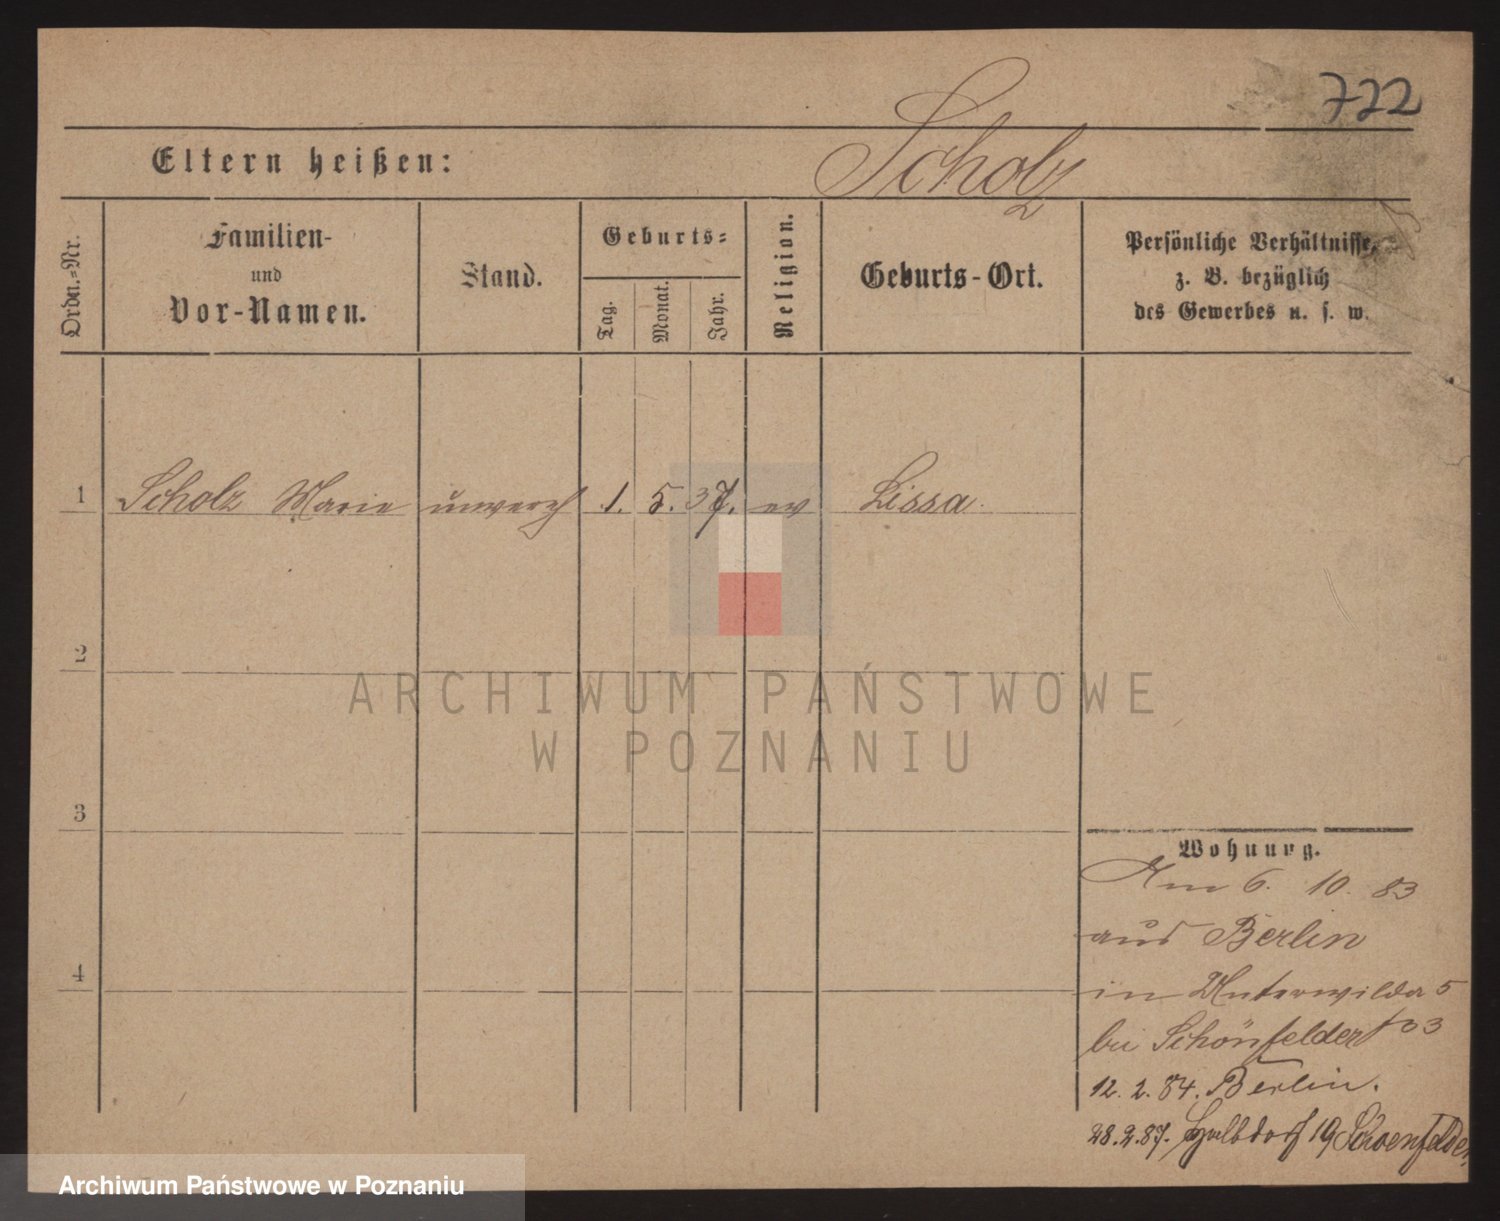 722
Eltern heißen:
Scholz
Ordn.=Nr.
Familien-
und
Vor-Namen.
Stand.
Geburts=
Tag.
Monat.
Jahr.
Religion.
Geburts-Ort.
Persönliche Verhältnisse,
z. B. bezüglich
des Gewerbes u. s. w.
1 Scholz Marie unvereh 1. 5. 37. ev Lissa.
2
3
4
Wohnung.
Am 6. 10. 83
aus Berlin
in Unterwilda 5
bei Schönfelder
12. 2. 84. Berlin.
28.2.87. Halbdorf 19 Schoenfelder
ARCHIWUM PAŃSTWOWE
W POZNANIU
Archiwum Państwowe w Poznaniu